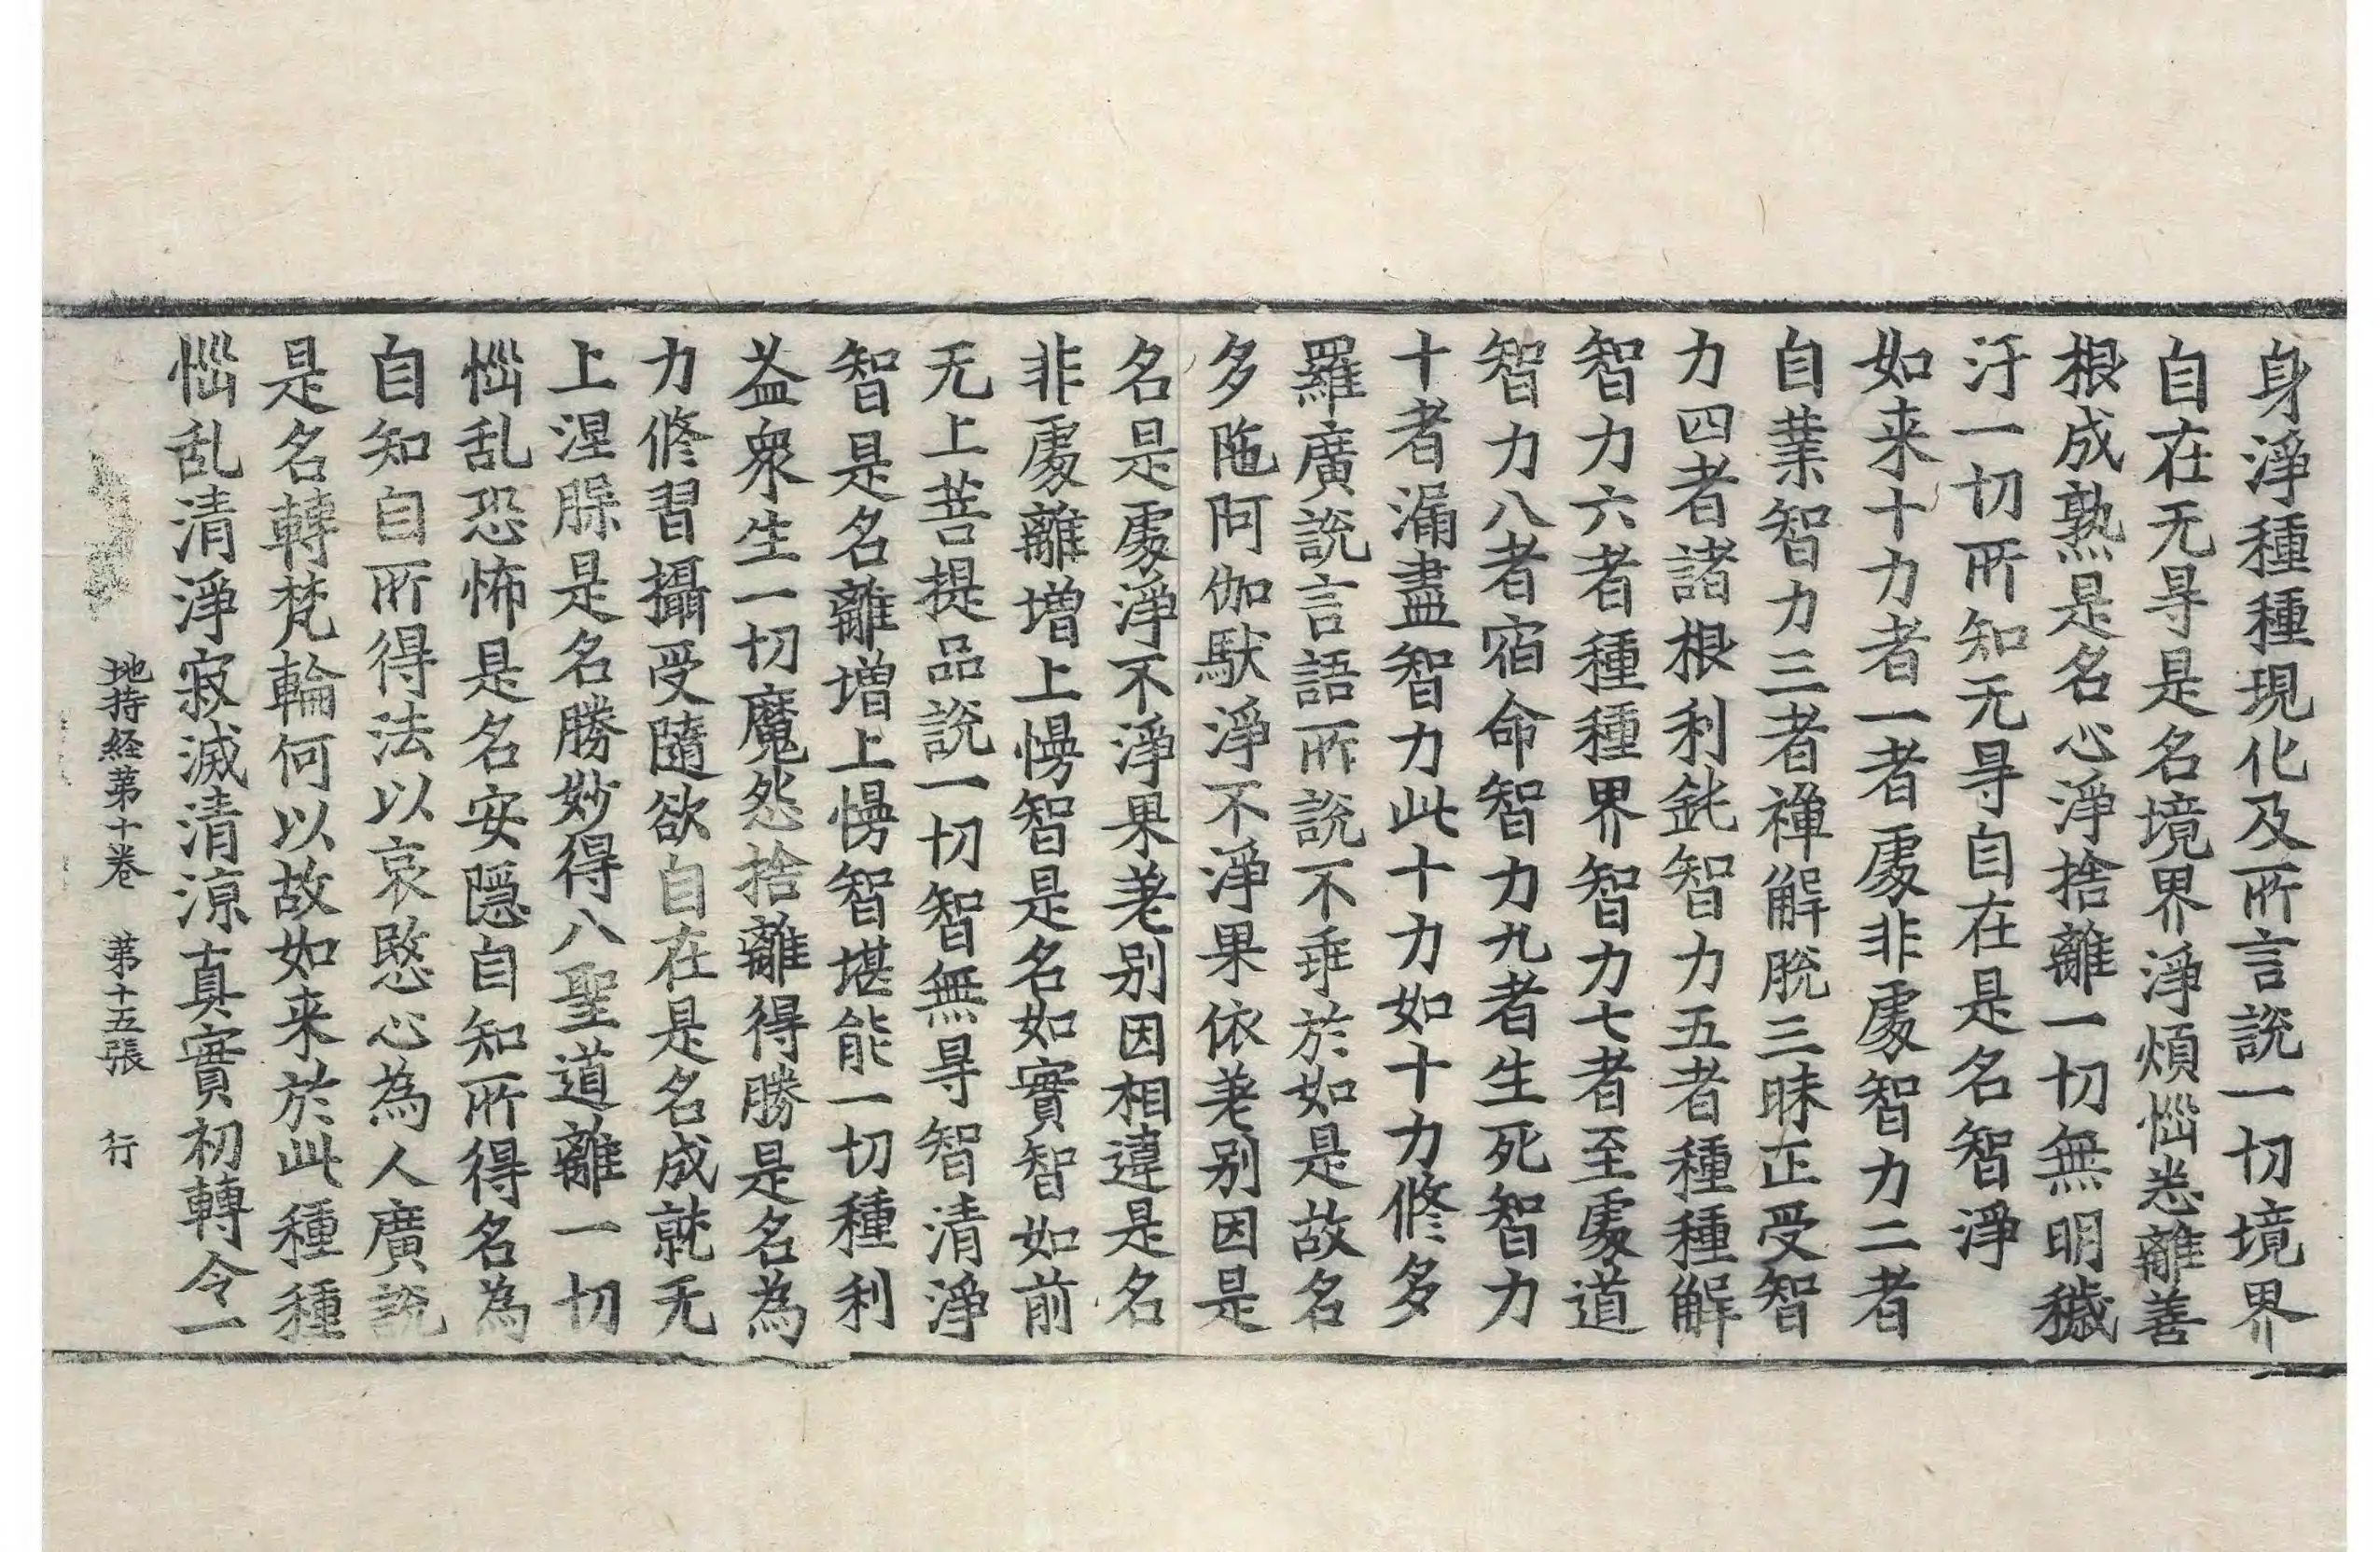 身淨種種現化及所言說一切境界
自在无㝵是名境界淨煩惱悉離善
根成熟是名心淨捨離一切無明穢
汙一切所知无㝵自在是名智淨
如来十力者一者處非處智力二者
自業智力三者禪解脫三昧正受智
力四者諸根利鈍智力五者種種解
智力六者種種界智力七者至處道
智力八者宿命智力九者生死智力
十者漏盡智力此十力如十力修多
羅廣說言語所說不乖於如是故名
多陁阿伽馱淨不淨果依差别因是
名是處淨不淨果差别因相違是名
非處離增上慢智是名如實智如前
无上菩提品說一切智無㝵智清淨
智是名離增上慢智堪能一切種利
益衆生一切魔怨捨離得勝是名為
力修習攝受隨欲自在是名成就无
上涅槃是名勝妙得八聖道離一切
惱乱恐怖是名安隱自知所得名為
自知自所得法以哀愍心為人廣說
是名轉梵輪何以故如来於此種種
惱乱清淨寂滅清涼真實初轉令一
地持経苐十卷　苐十五張　行